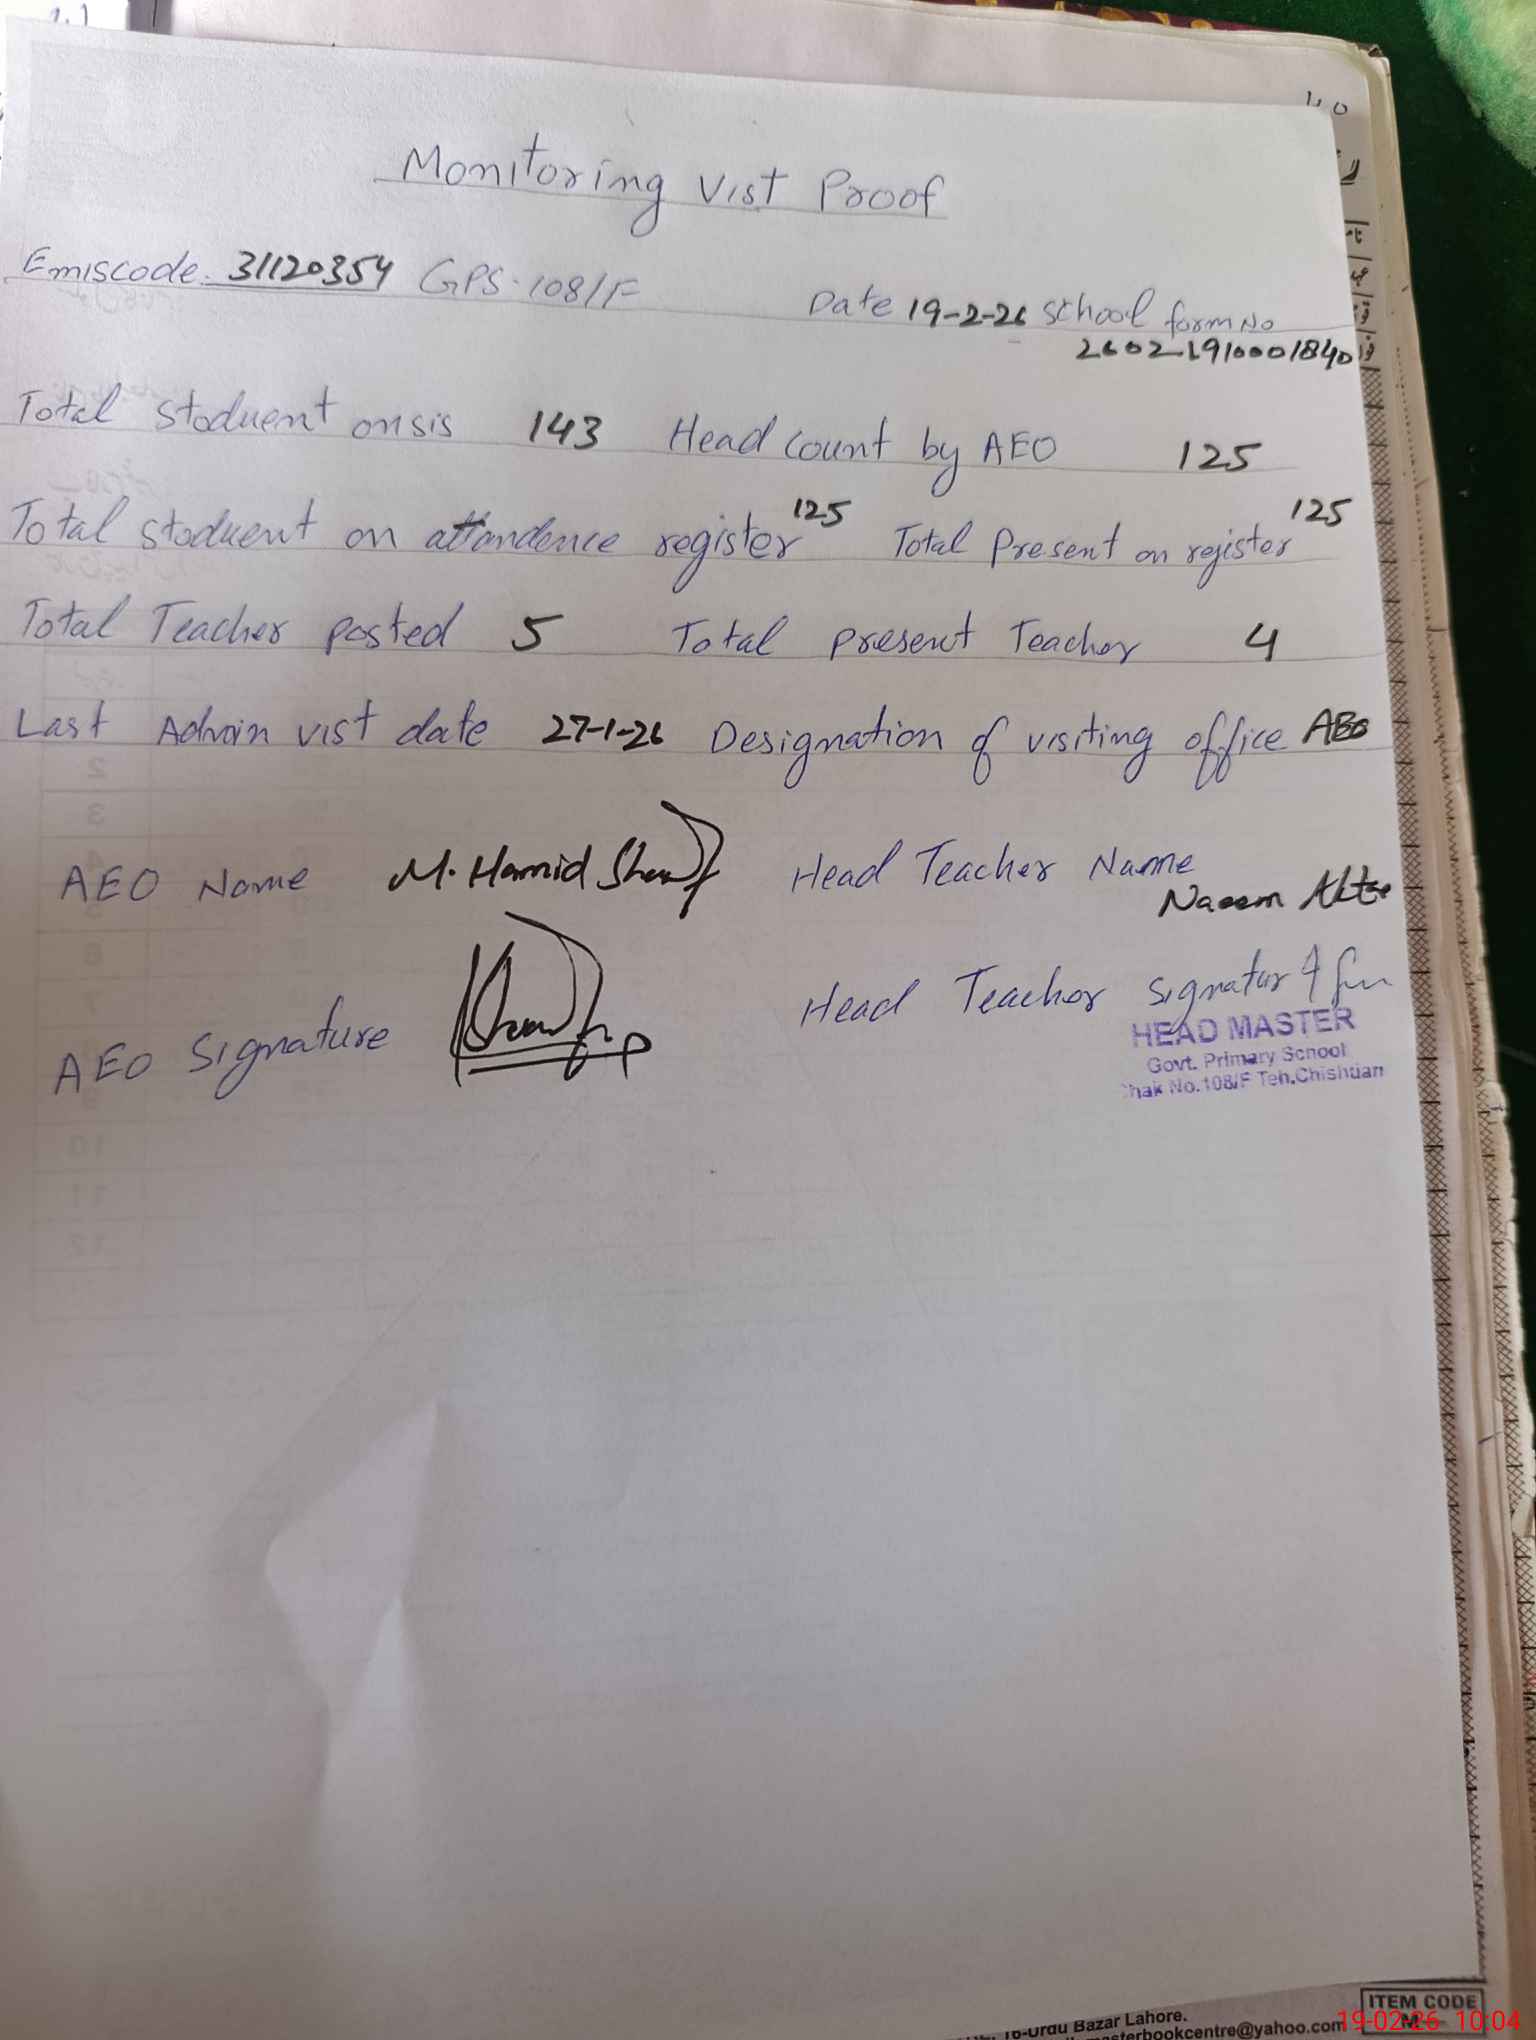 Monitoring Vist Proof
Emiscode. 31120354 GPS. 108/F
Date 19-2-26 school form No
26021910001840
Total stoduent on sis 143 Head count by AEO 125
Total stoduent on attandence register 125 Total Present on register 125
Total Teacher posted 5 Total present Teacher 4
Last Admin vist date 27-1-26 Designation of visiting office AEO
AEO Name M. Hamid Head Teacher Name
Naeem
AEO Signature Head Teacher signatur
HEAD MASTER
Govt. Primary School
Chak No.108/F Teh.Chishtian
16-Urdu Bazar Lahore.
masterbookcentre@yahoo.com
ITEM CODE
19-02-26 10:04